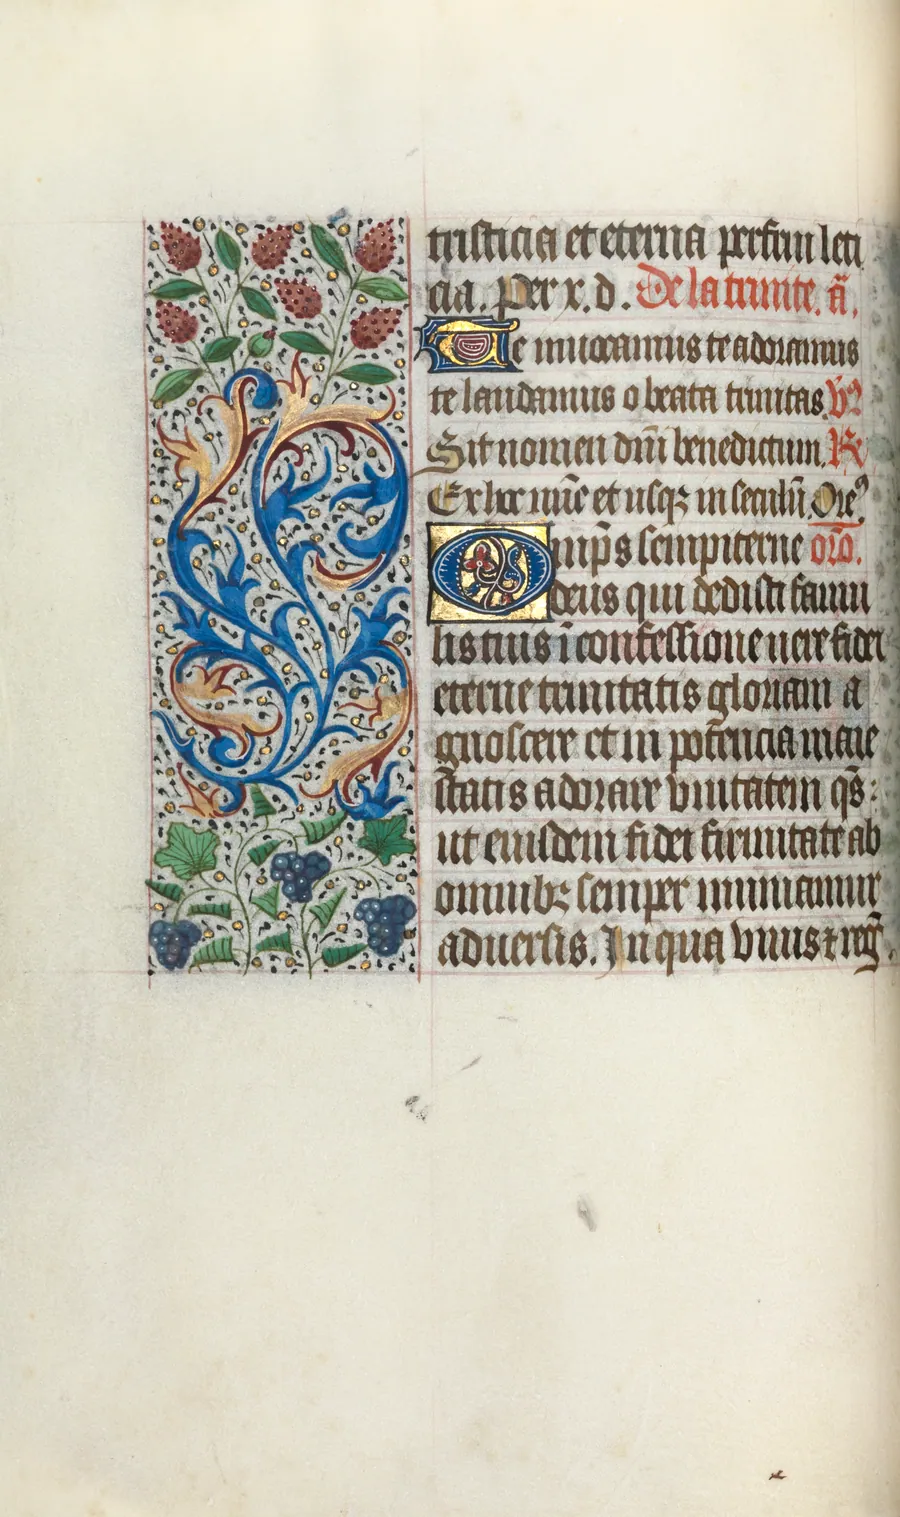 tristicia et eterna perfrui leti
cia. Per x. d. De la trinite. ã.
Te inuocamus te adoramus
te laudamus o beata trinitas. v̾
Sit nomen dñi benedictum. R̾
Ex hoc nũc et usqꝫ in seculũ. Oreꝰ
Omp̃s sempiterne oro͂.
deus qui dedisti famu
lis tuis ĩ confessione uere fidei
eterne trinitatis gloriam a
gnoscere et in potẽcia maie
statis adorare vnitatem qs̃:
ut eiusdem fidei firmitate ab
omnibꝫ semper muniamur
aduersis. In qua viuis ⁊ reg̃.